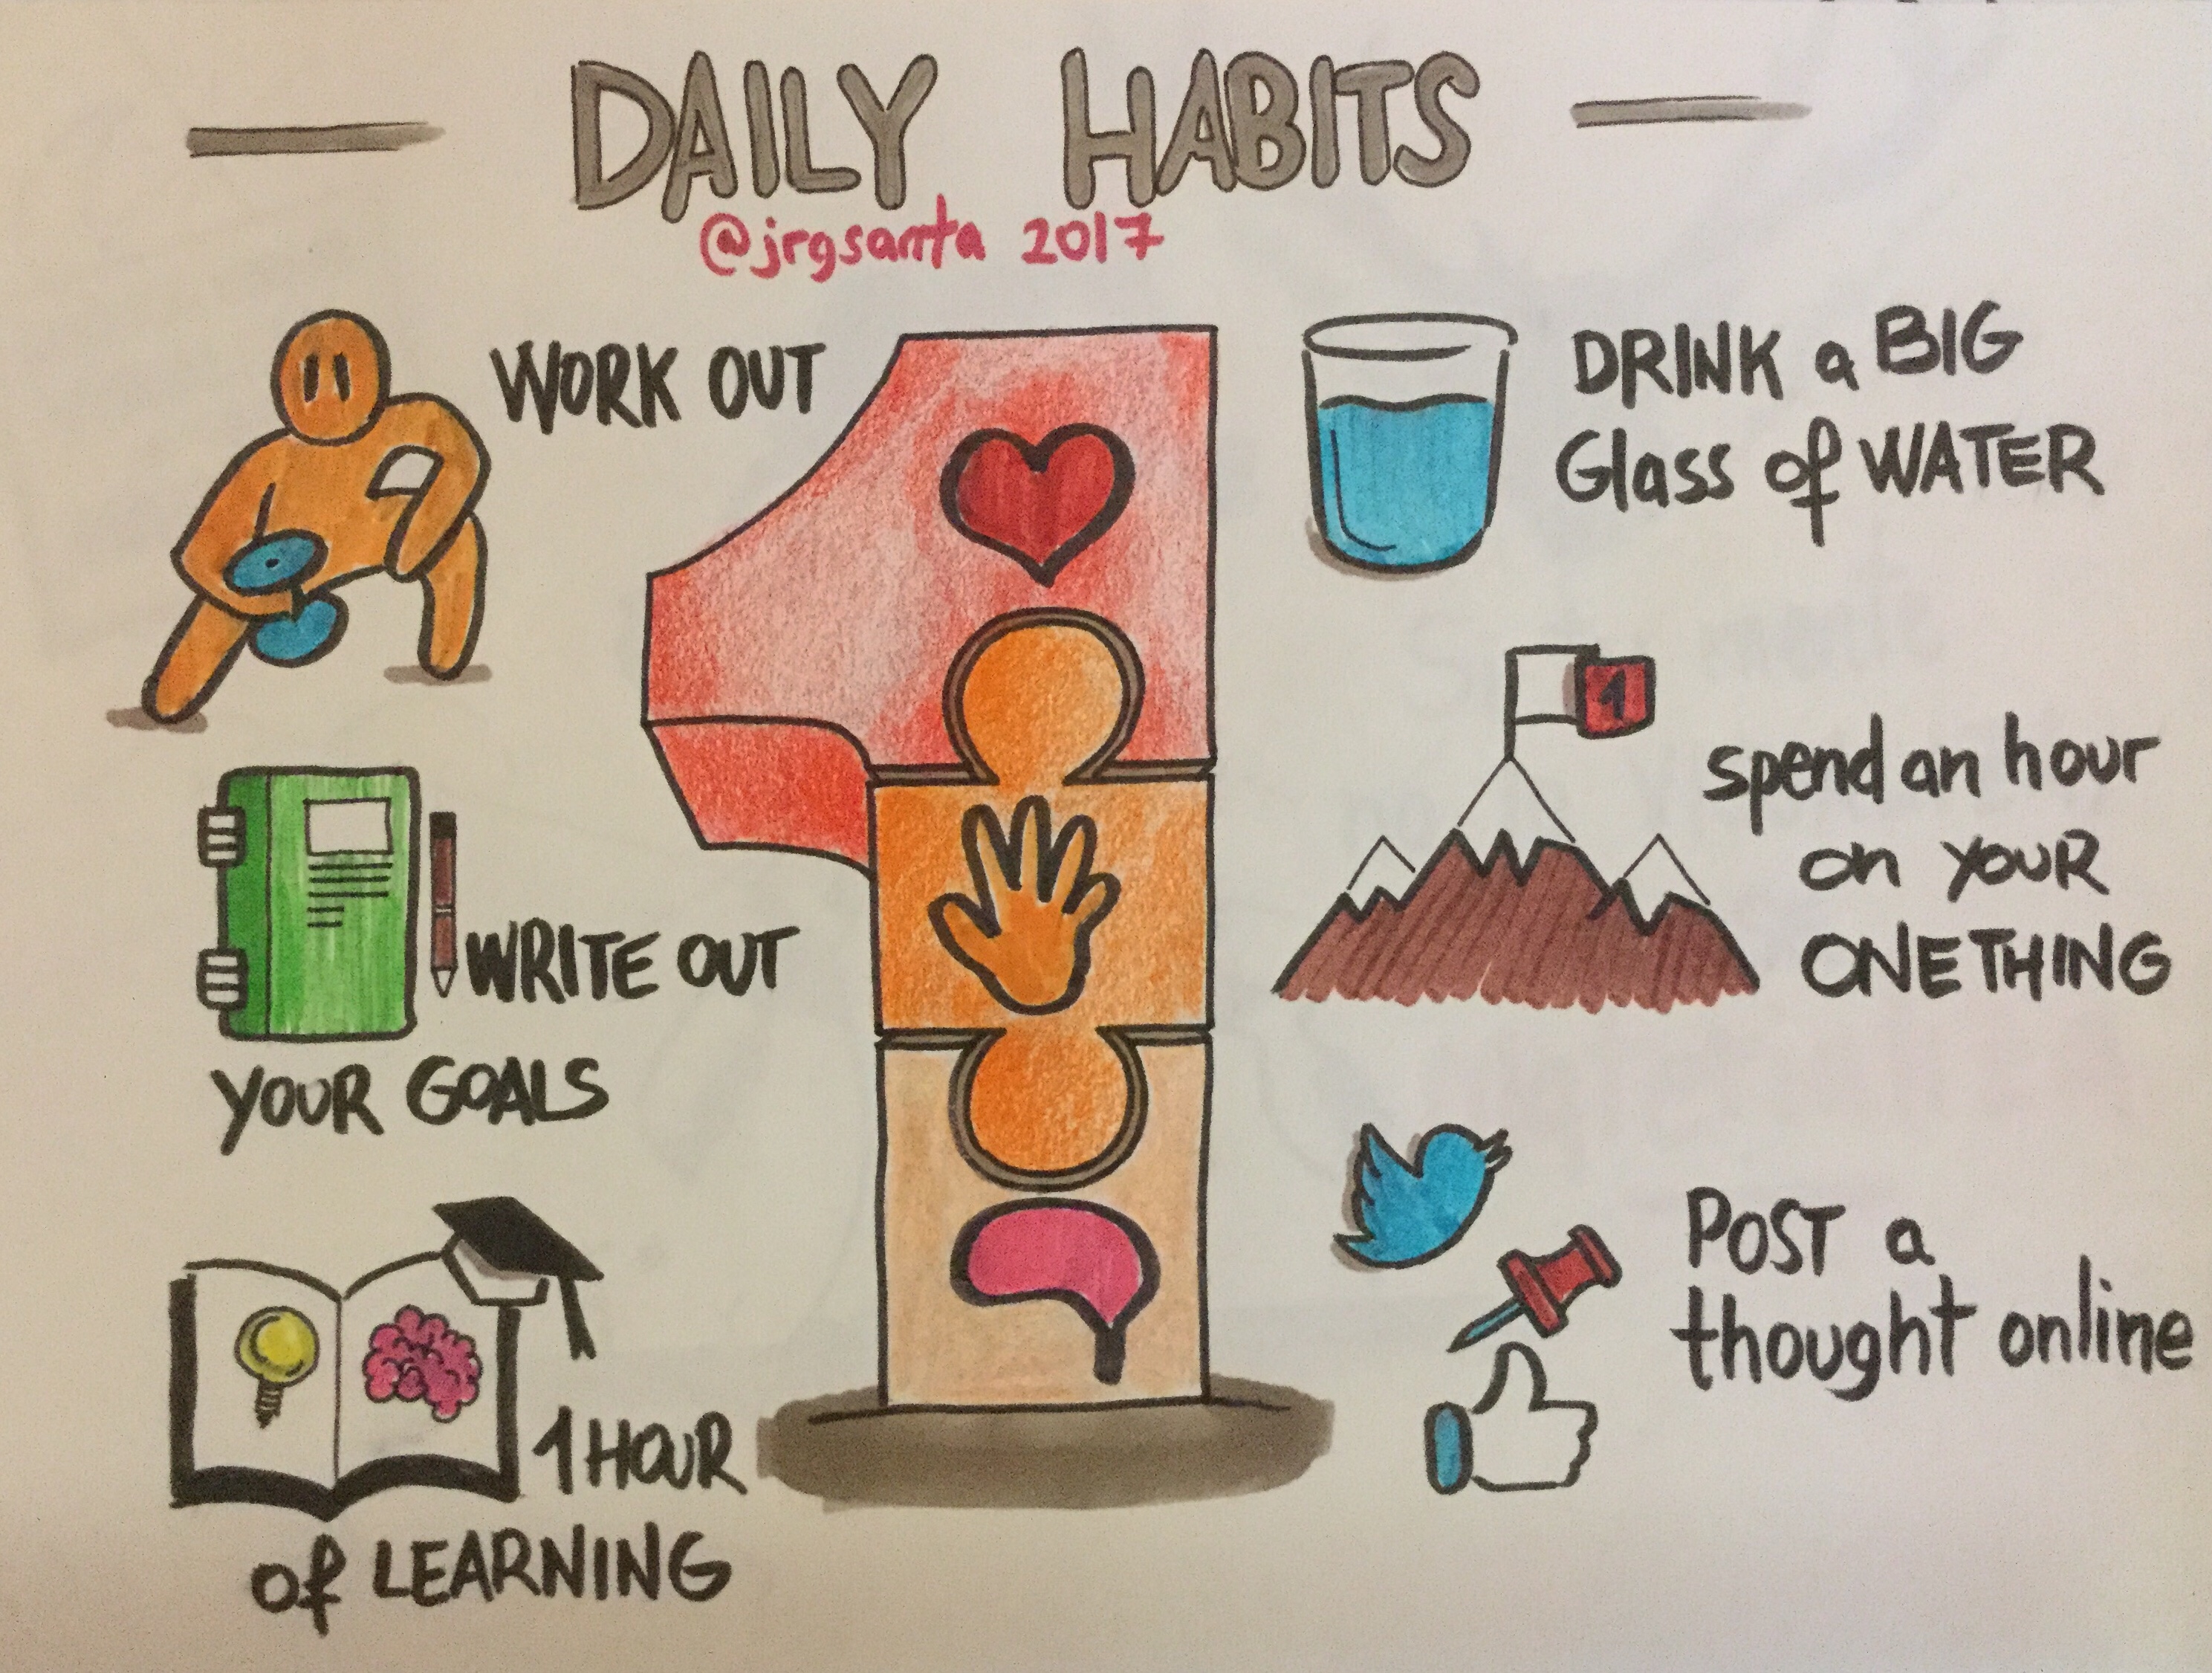 DAILY HABITS
@jrgsanta 2017
WORK OUT
DRINK a BIG
Glass of WATER
1
spend an hour
on YOUR
ONE THING
WRITE OUT
YOUR GOALS
POST a
thought online
1 HOUR
of LEARNING